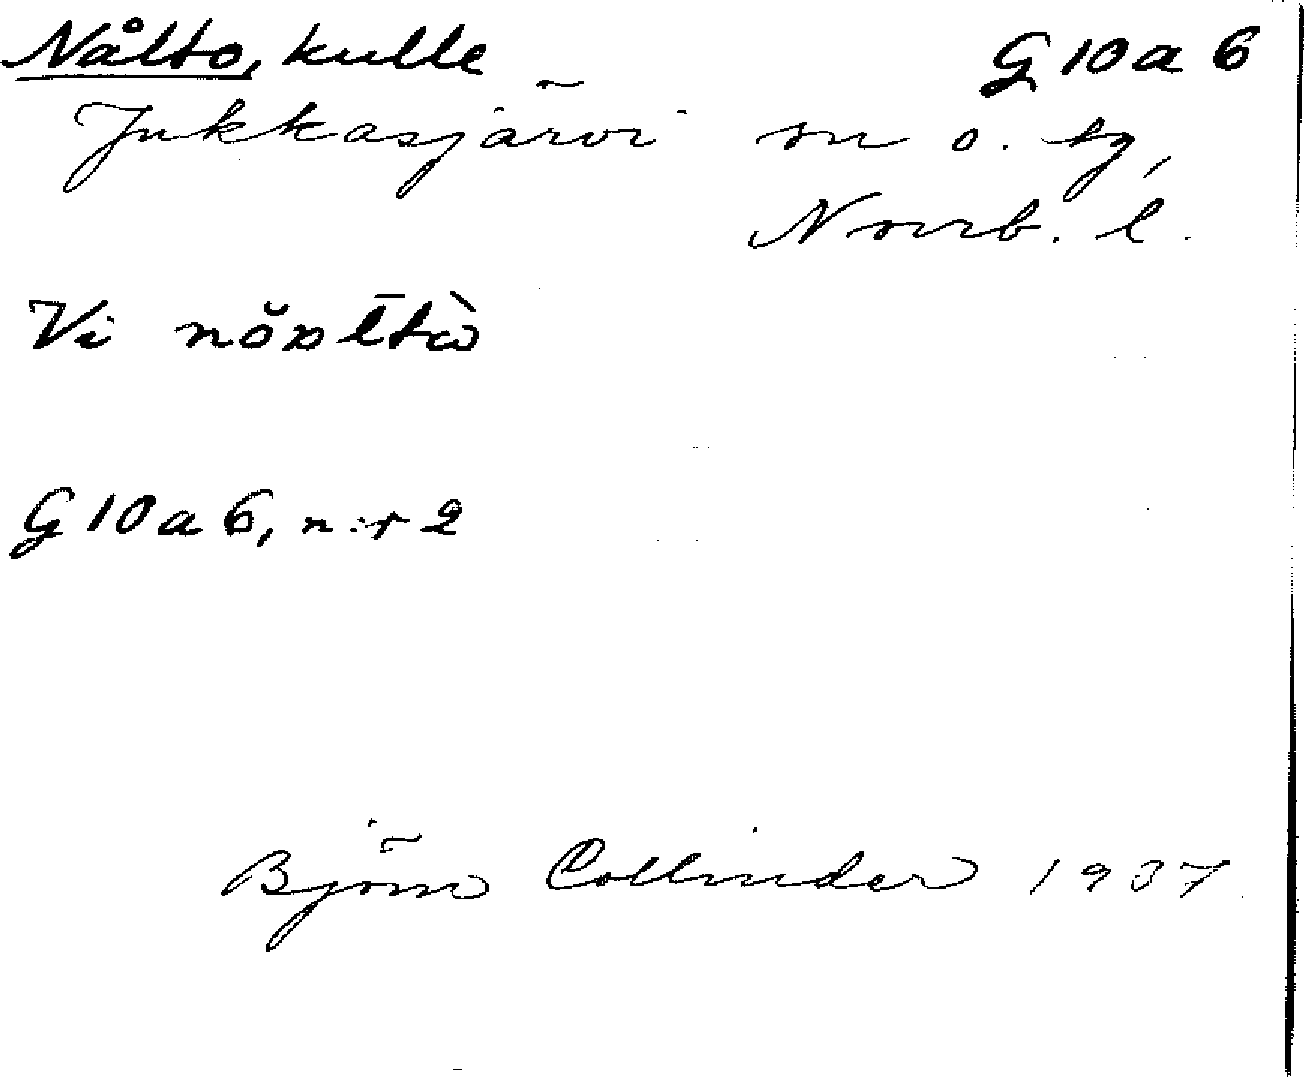 Nålto, kulle G 10 a 6
Jukkasjärvi sn o. tg,
Norrb. l.
Vi
G 10 a 6, n:r 2
Björn Collinder 1937